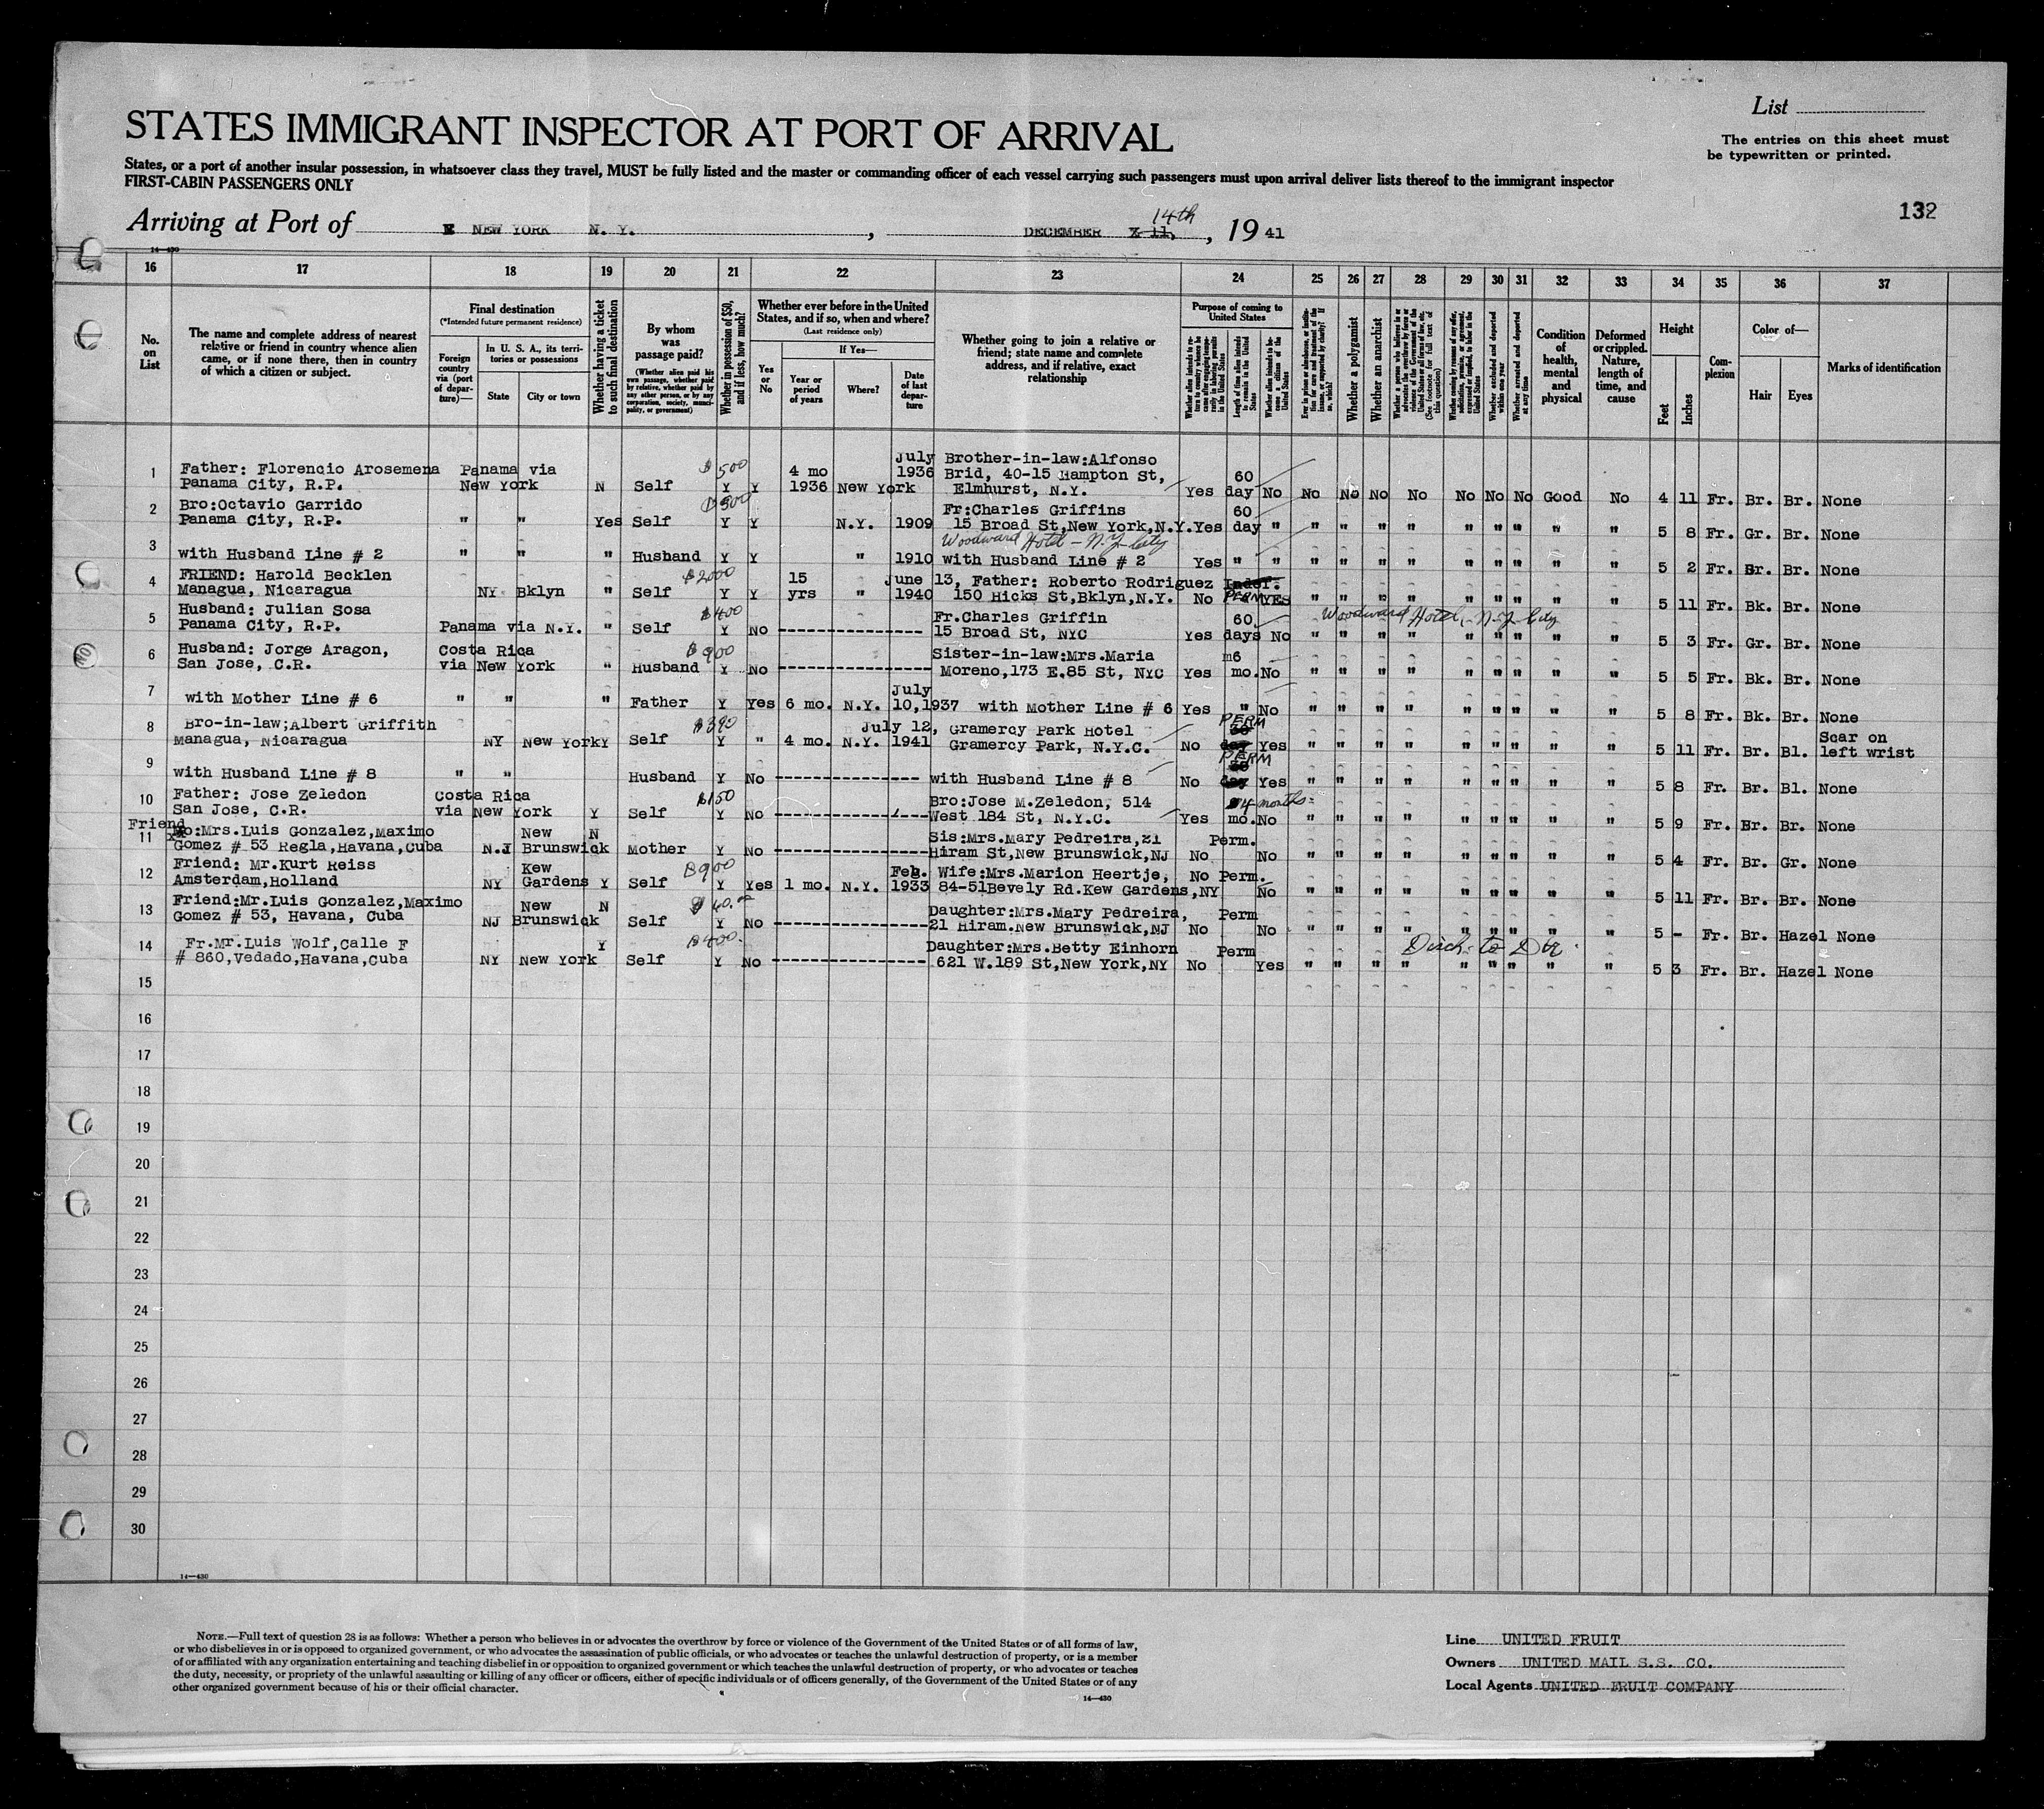 List
STATES IMMIGRANT INSPECTOR AT PORT OF ARRIVAL
The entries on this sheet must
be typewritten or printed.
States, or a port of another insular possession, in whatsoever class they travel, MUST be fully listed and the master or commanding officer of each vessel carrying such passengers must upon arrival deliver lists thereof to the immigrant inspector
FIRST-CABIN PASSENGERS ONLY
132
Arriving at Port of NEW YORK N. Y. , DECEMBER 11, 14th , 19 41
14—430
16 17 18 19 20 21 22 23 24 25 26 27 28 29 30 31 32 33 34 35 36 37
No. on List
The name and complete address of nearest relative or friend in country whence alien came, or if none there, then in country of which a citizen or subject.
Final destination
(*Intended future permanent residence)
Foreign country via (port of departure)—
In U. S. A., its territories or possessions
State
City or town
Whether having a ticket to such final destination
By whom was passage paid?
(Whether alien paid his own passage, whether paid by relative, whether paid by any other person, or by any corporation, society, municipality, or government)
Whether in possession of $50, and if less, how much?
Whether ever before in the United States, and if so, when and where?
(Last residence only)
Yes or No
If Yes—
Year or period of years
Where?
Date of last departure
Whether going to join a relative or friend; state name and complete address, and if relative, exact relationship
Purpose of coming to United States
Whether alien intends to return to country whence he came after engaging temporarily in laboring pursuits in the United States
Length of time alien intends to remain in the United States
Whether alien intends to become a citizen of the United States
Ever in prison or almshouse, or institution for care and treatment of the insane, or supported by charity? If so, which?
Whether a polygamist
Whether an anarchist
Whether a person who believes in or advocates the overthrow by force or violence of the Government of the United States or all forms of law, etc. (See footnote for full text of this question)
Whether coming by reason of any offer, solicitation, promise, or agreement, expressed or implied, to labor in the United States
Whether excluded and deported within one year
Whether arrested and deported at any time
Condition of health, mental and physical
Deformed or crippled. Nature, length of time, and cause
Height
Feet
Inches
Complexion
Color of—
Hair
Eyes
Marks of identification
1 Father: Florencio Arosemena Panama via $500 4 mo July Brother-in-law:Alfonso
Panama City, R.P. New York N Self Y Y 1936 New York 1936 Brid, 40-15 Hampton St, Elmhurst, N.Y. Yes 60 day No No No No No No No No Good No 4 11 Fr. Br. Br. None
2 Bro:Octavio Garrido $500 Fr:Charles Griffins
Panama City, R.P. " " Yes Self Y Y N.Y. 1909 15 Broad St,New York,N.Y. Yes 60 day " " " " " " " " " " 5 8 Fr. Gr. Br. None
Woodward Hotel - N.Y City
3 with Husband Line # 2 " " " Husband Y Y " 1910 with Husband Line # 2 Yes " " " " " " " " " " " 5 2 Fr. Br. Br. None
4 FRIEND: Harold Becklen $2000 15 June 13, Father: Roberto Rodriguez Indef.
Managua, Nicaragua NY Bklyn " Self Y Y yrs " 1940 150 Hicks St,Bklyn,N.Y. No PERM YES " " " " " " " " " 5 11 Fr. Bk. Br. None
5 Husband: Julian Sosa $400 Fr.Charles Griffin 60 Woodward Hotel, - N.Y City
Panama City, R.P. Panama via N.Y. " Self Y No ---------------- 15 Broad St, NYC Yes days No " " " " " " " " " 5 3 Fr. Gr. Br. None
6 Husband: Jorge Aragon, Costa Rica $900 Sister-in-law:Mrs.Maria m6
San Jose, C.R. via New York " Husband Y No ---------------- Moreno,173 E.85 St, NYC Yes mo. No " " " " " " " " " 5 5 Fr. Bk. Br. None
7 with Mother Line # 6 " " " Father Y Yes 6 mo. N.Y. July 10,1937 with Mother Line # 6 Yes " No " " " " " " " " " 5 8 Fr. Bk. Br. None
8 Bro-in-law;Albert Griffith $390 July 12, Gramercy Park Hotel PERM 30 Scar on
Managua, Nicaragua NY New York Y Self Y " 4 mo. N.Y. 1941 Gramercy Park, N.Y.C. No day Yes " " " " " " " " " 5 11 Fr. Br. Bl. left wrist
9 with Husband Line # 8 " " Husband Y No ---------------- with Husband Line # 8 No PERM 30 day Yes " " " " " " " " " 5 8 Fr. Br. Bl. None
10 Father: Jose Zeledon Costa Rica $150 Bro:Jose M.Zeledon, 514 4 months
San Jose, C.R. via New York Y Self Y No ---------------- West 184 St, N.Y.C. Yes mo. No " " " " " " " " " 5 9 Fr. Br. Br. None
Friend
11 Mo:Mrs.Luis Gonzalez,Maximo New N Sis:Mrs.Mary Pedreira,21 Perm.
Gomez # 53 Regla,Havana,Cuba N.J Brunswick Mother Y No ---------------- Hiram St,New Brunswick,NJ No No " " " " " " " " " 5 4 Fr. Br. Gr. None
12 Friend: Mr.Kurt Reiss Kew $900 Feb. Wife:Mrs.Marion Heertje, No Perm.
Amsterdam,Holland NY Gardens Y Self Y Yes 1 mo. N.Y. 1933 84-51Bevely Rd.Kew Gardens,NY No " " " " " " " " " 5 11 Fr. Br. Br. None
13 Friend:Mr.Luis Gonzalez,Maximo New N $40.00 Daughter:Mrs.Mary Pedreira, Perm
Gomez # 53, Havana, Cuba NJ Brunswick Self Y No ---------------- 21 Hiram.New Brunswick,NJ No No " " " " " " " " " 5 - Fr. Br. Hazel None
14 Fr.Mr.Luis Wolf,Calle F Y $400. Daughter:Mrs.Betty Einhorn Perm Disch. to Dtr.
# 860,Vedado,Havana,Cuba NY New York Self Y No ---------------- 621 W.189 St,New York,NY No Yes " " " " " " " " " 5 3 Fr. Br. Hazel None
15
16
17
18
19
20
21
22
23
24
25
26
27
28
29
30
14—430
NOTE.—Full text of question 28 is as follows: Whether a person who believes in or advocates the overthrow by force or violence of the Government of the United States or of all forms of law,
or who disbelieves in or is opposed to organized government, or who advocates the assassination of public officials, or who advocates or teaches the unlawful destruction of property, or is a member
of or affiliated with any organization entertaining and teaching disbelief in or opposition to organized government or which teaches the unlawful destruction of property, or who advocates or teaches
the duty, necessity, or propriety of the unlawful assaulting or killing of any officer or officers, either of specific individuals or of officers generally, of the Government of the United States or of any
other organized government because of his or their official character.
14—430
Line UNITED FRUIT
Owners UNITED MAIL S.S. CO.
Local Agents UNITED FRUIT COMPANY